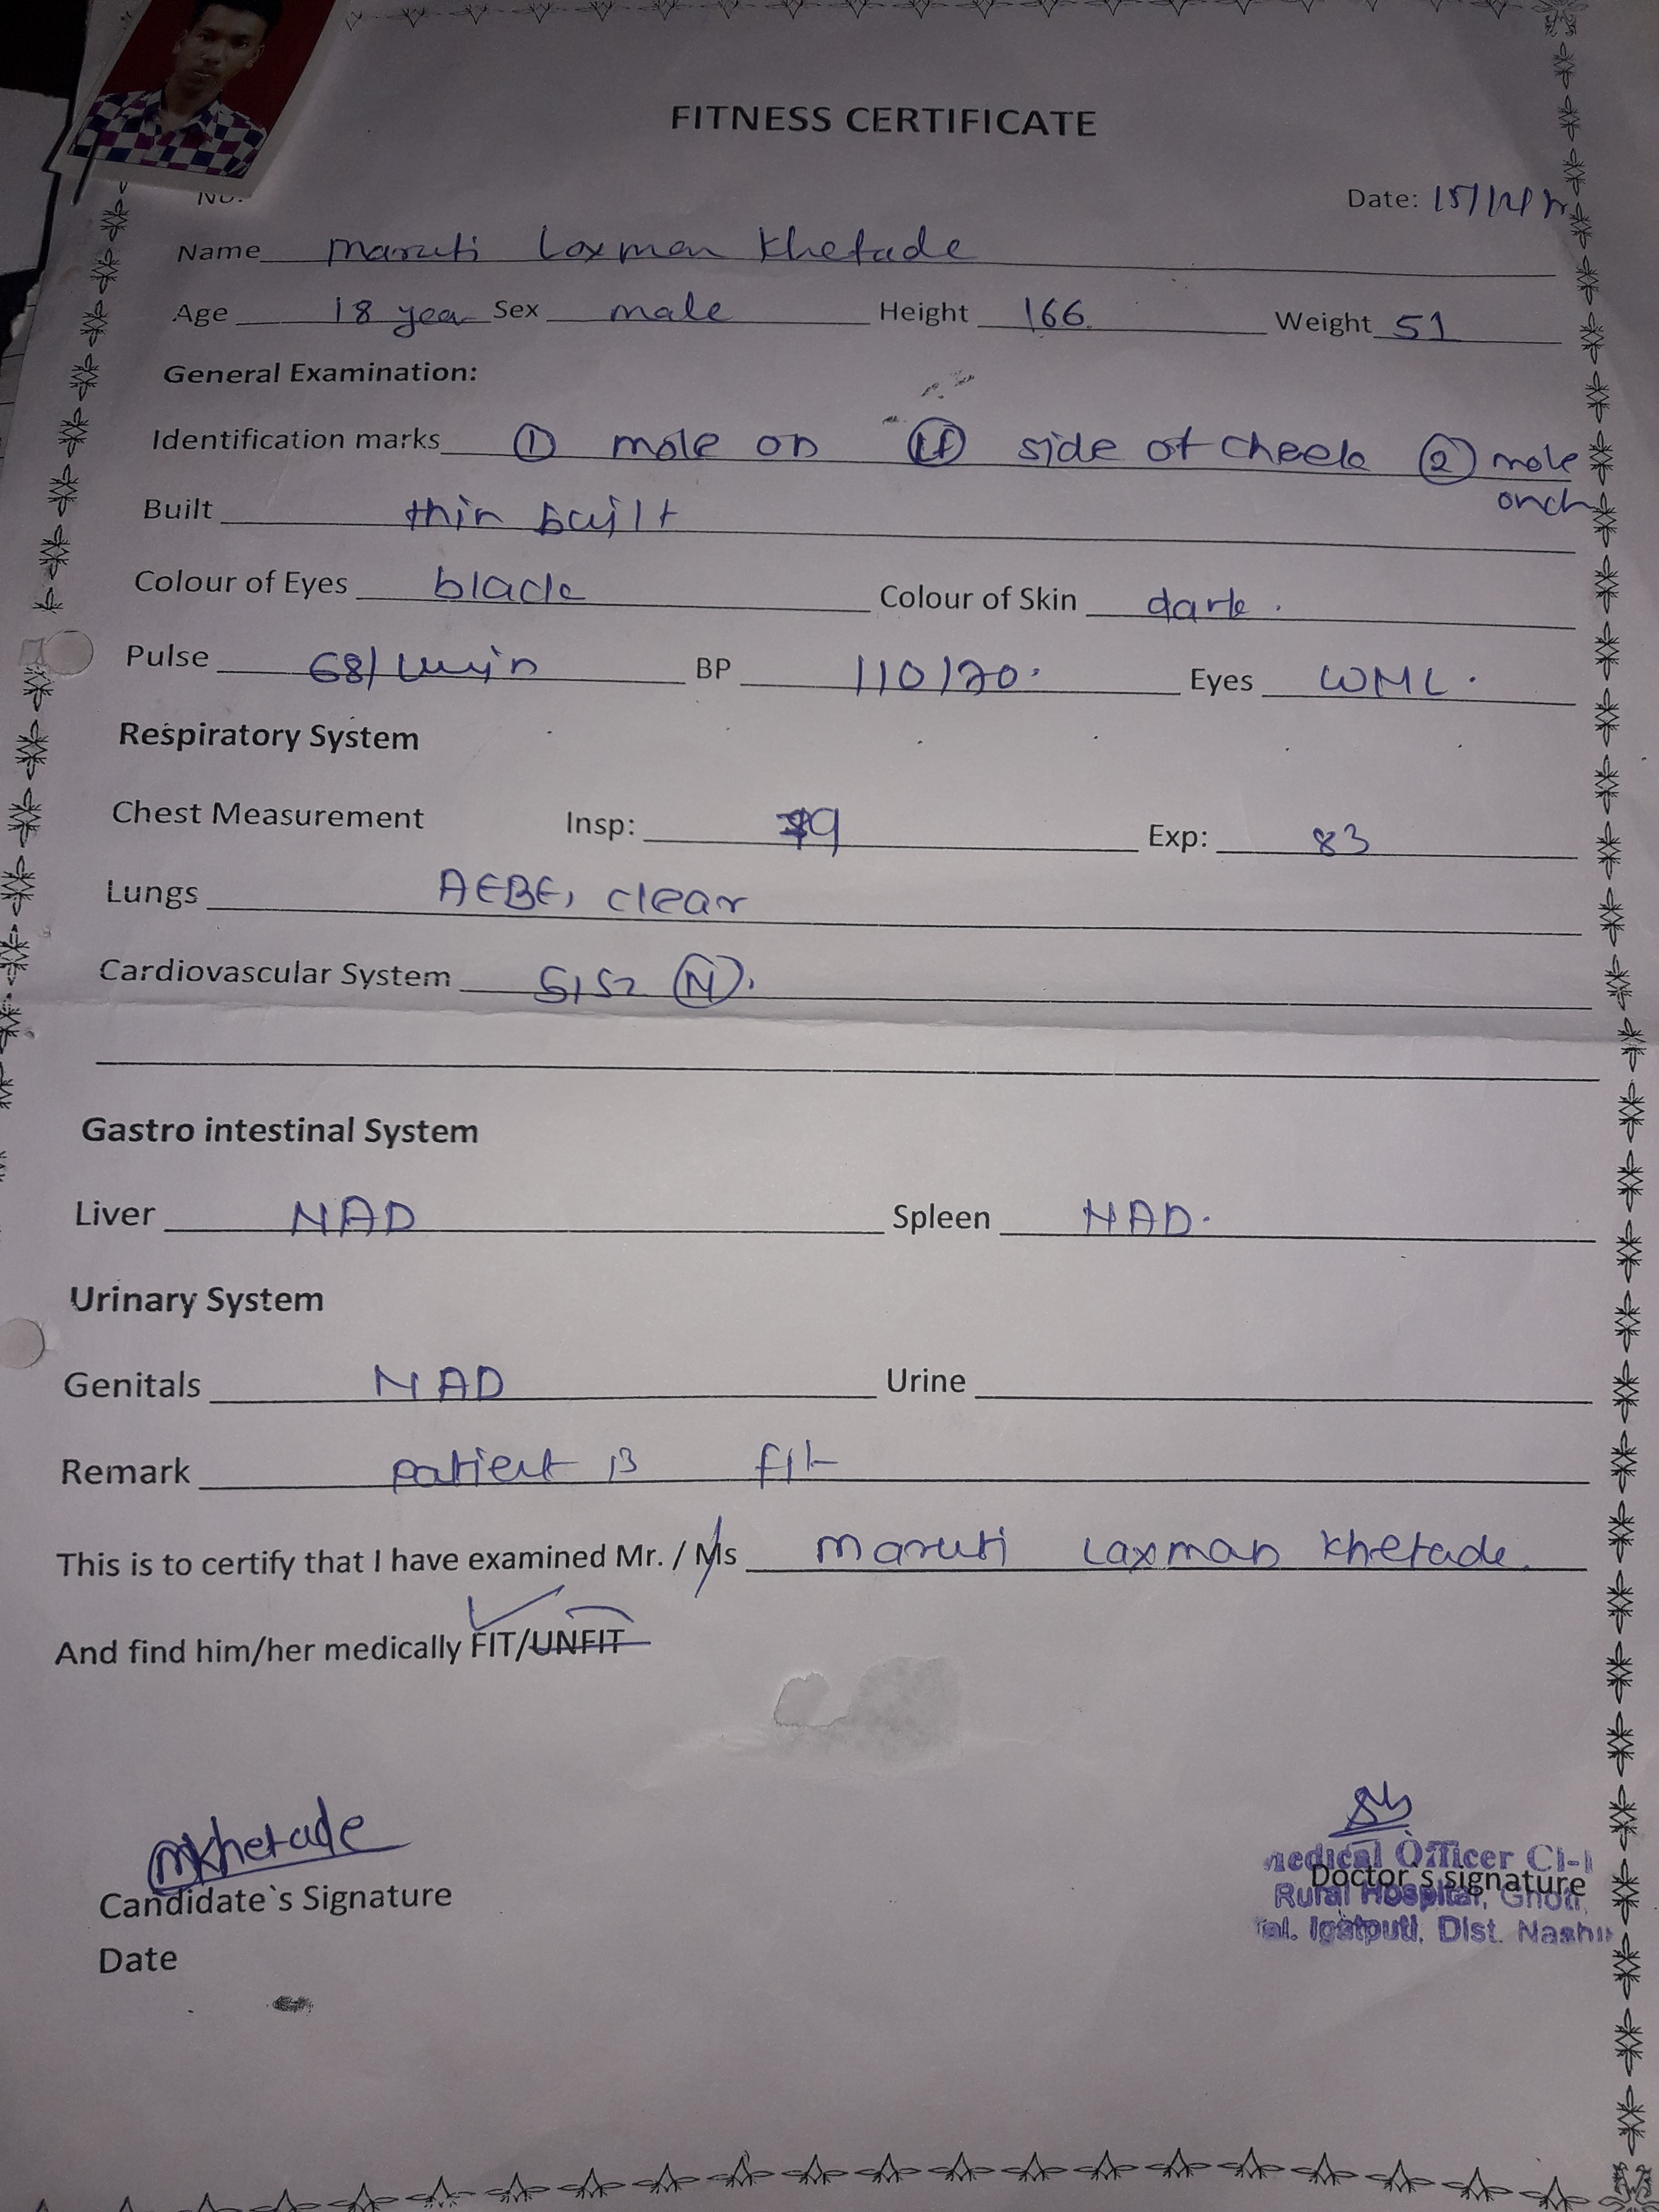 FITNESS CERTIFICATE
No.
Date: 15/12/
Name maruti Laxman Khetade
Age 18 year Sex male Height 166 Weight 51
General Examination:
Identification marks ① mole on side of cheek ② mole
on ch
Built thin built
Colour of Eyes black Colour of Skin dark.
Pulse 68/min BP 110/70. Eyes WNL.
Respiratory System
Chest Measurement Insp: 79 Exp: 83
Lungs AEBE, clear
Cardiovascular System S1S2 Ⓝ.
Gastro intestinal System
Liver NAD Spleen NAD.
Urinary System
Genitals NAD Urine
Remark patient is fit
This is to certify that I have examined Mr. / Ms maruti Laxman Khetade.
And find him/her medically FIT/UNFIT
MKhetade
Candidate`s Signature
Date
Medical Officer Cl-I
Doctor`s signature
Rural Hospital, Ghoti,
Tal. Igatpuri, Dist. Nashi